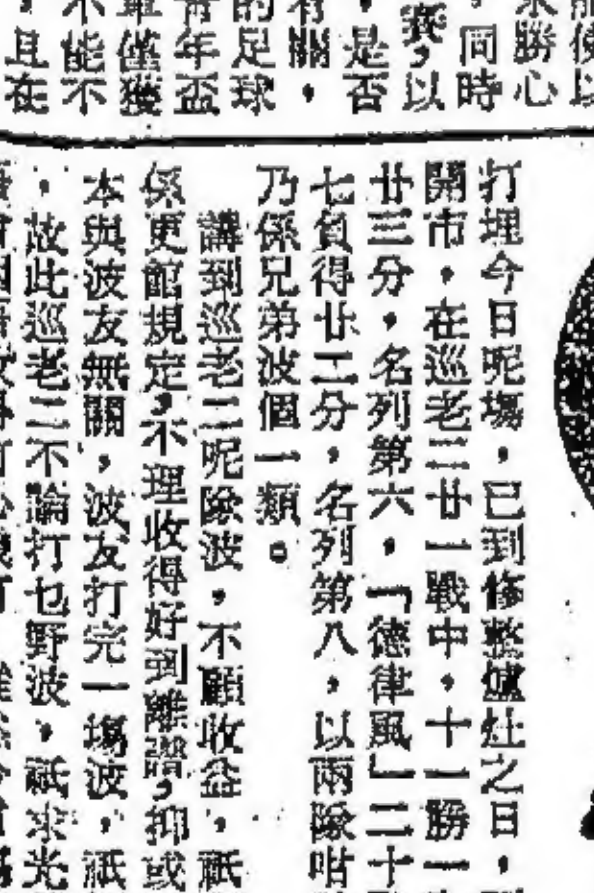 能使以
求勝心
，同時
賽，以
，是否
有關，
的足球
青年盃
單僅獲
不能不
，且在
打埋今日呢場，已到修整爐灶之日，
開市，在巡老二廿一戰中，十一勝一
廿三分，名列第六，「德律風」二十
七負得廿二分，名列第八，以兩隊咁
乃係兄弟波個一類。
講到巡老二呢隊波，不顧收益，祇
係更館規定，不理收得好到離譜，抑或
本與波友無關，波友打完一場波，祇
，故此巡老二不論打乜野波，祇求光